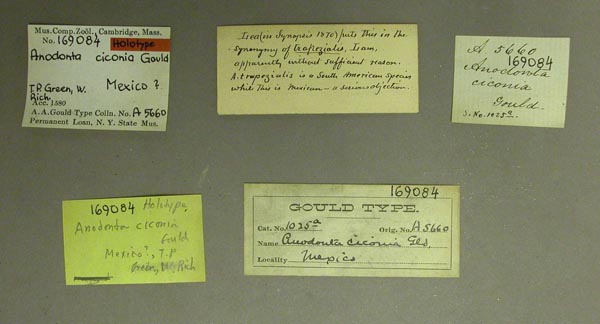 Mus.Comp.Zoöl., Cambridge, Mass.
No. 169084 Holotype
Anodonta ciconia Gould
Mexico ?
T.P. Green, W. Rich
Acc. 1580
A.A.Gould Type Colln. No. A 5660
Permanent Loan, N. Y. State Mus.
Isea (in Synopsis 1870) puts this in the
synonymy of trapezialis, Lam,
apparently without sufficient reason.
A. trapezialis is a South American species
while this is Mexican — a serious objection.
A. 5660
169084
Anodonta
ciconia
Gould.
S. No. 1025a.
169084 Holotype
Anodonta ciconia
Gould
Mexico?, T.P
Green, W. Rich
169084
GOULD TYPE.
Cat. No. 1025a Orig. No. A 5660
Name Anodonta ciconia Gld.
Locality Mexico